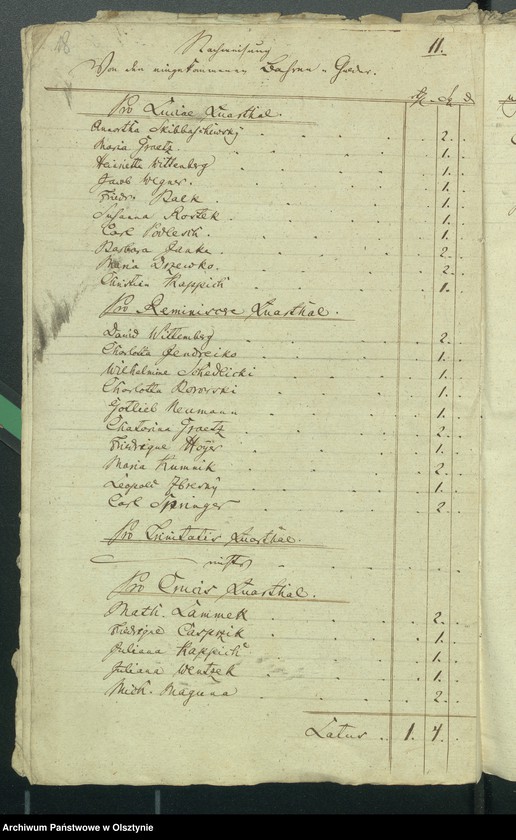 11.
Nachweisung
Von den eingekommenen Bahren u Gelder.
rtl. Sg. d
Pro Luciae Quarthal.
Skibbaschewsky 2.
Maria Graetz. 1.
Henriette Wittenberg 1.
Jacob Wegner. 1.
Friedr. Balk 1.
Susanna Rostek. 1.
Carl Podlesch. 1.
Barbara Janke. 2.
Maria Drzewko. 2.
Christian Kappich 1.
Pro Reminiscere Quarthal.
David Wittemberg 2.
Charlotta Jendreiko 1.
Wilhelmine 1.
Charlotta Borowski 1.
Gotlieb Neumann 1.
Chatarina Graetz 2.
Friedrique Hoyer 1.
Maria Kumnik 2.
Leopold 1.
Carl Springer 2.
Pro Trinitatis Quarthal.
nichts
Pro Crucis Quarthal.
Math. Lammek 2.
Fiedrique Casprik 1.
Juliana Kappich 1.
Juliana Wentzek 1.
Mich. Maguna 2.
Latus 1. 4.
Archiwum Państwowe w Olsztynie